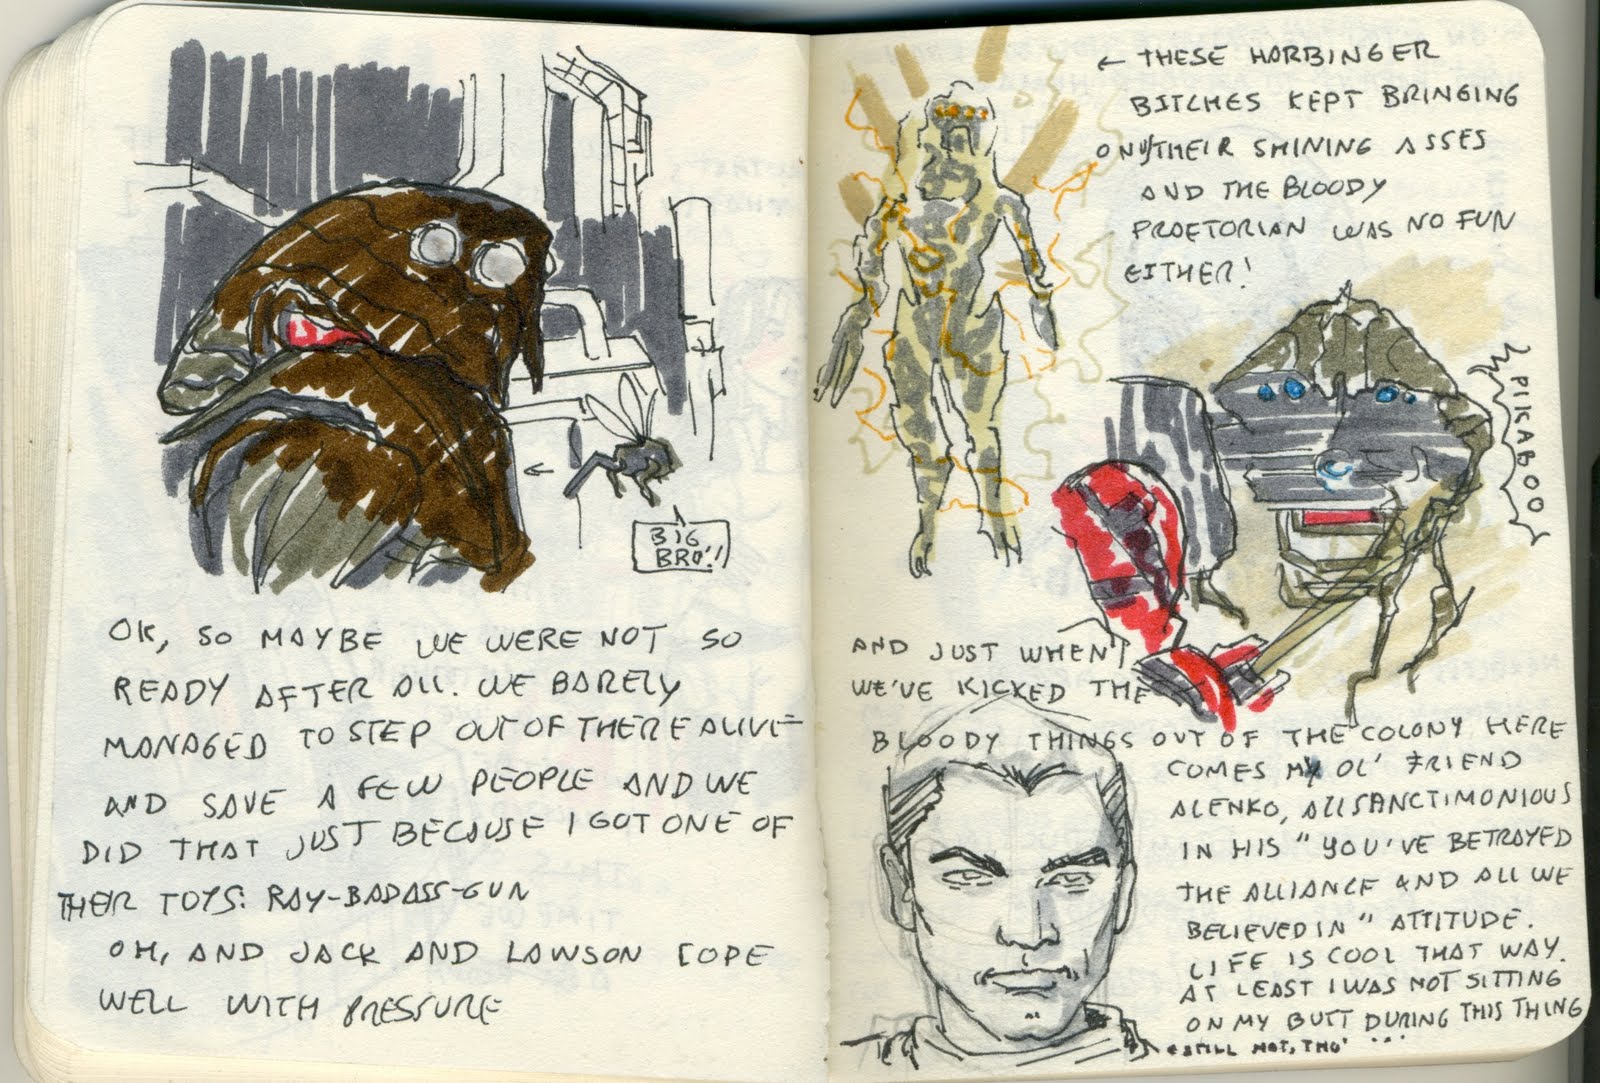 BIG
BRO'!
OK, SO MAYBE WE WERE NOT SO
READY AFTER ALL. WE BARELY
MANAGED TO STEP OUT OF THERE ALIVE
AND SAVE A FEW PEOPLE AND WE
DID THAT JUST BECAUSE I GOT ONE OF
THEIR TOYS: RAY-BADASS-GUN
OH, AND JACK AND LAWSON COPE
WELL WITH PRESSURE
← THESE HARBINGER
BITCHES KEPT BRINGING
ON THEIR SHINING ASSES
AND THE BLOODY
PRAETORIAN WAS NO FUN
EITHER!
PIKABOO
AND JUST WHEN
WE'VE KICKED THE
BLOODY THINGS OUT OF THE COLONY HERE
COMES MY OL' FRIEND
ALENKO, ALL SANCTIMONIOUS
IN HIS "YOU'VE BETRAYED
THE ALLIANCE AND ALL WE
BELIEVED IN" ATTITUDE.
LIFE IS COOL THAT WAY.
AT LEAST I WAS NOT SITTING
ON MY BUTT DURING THIS THING
STILL HOT, THO' ...